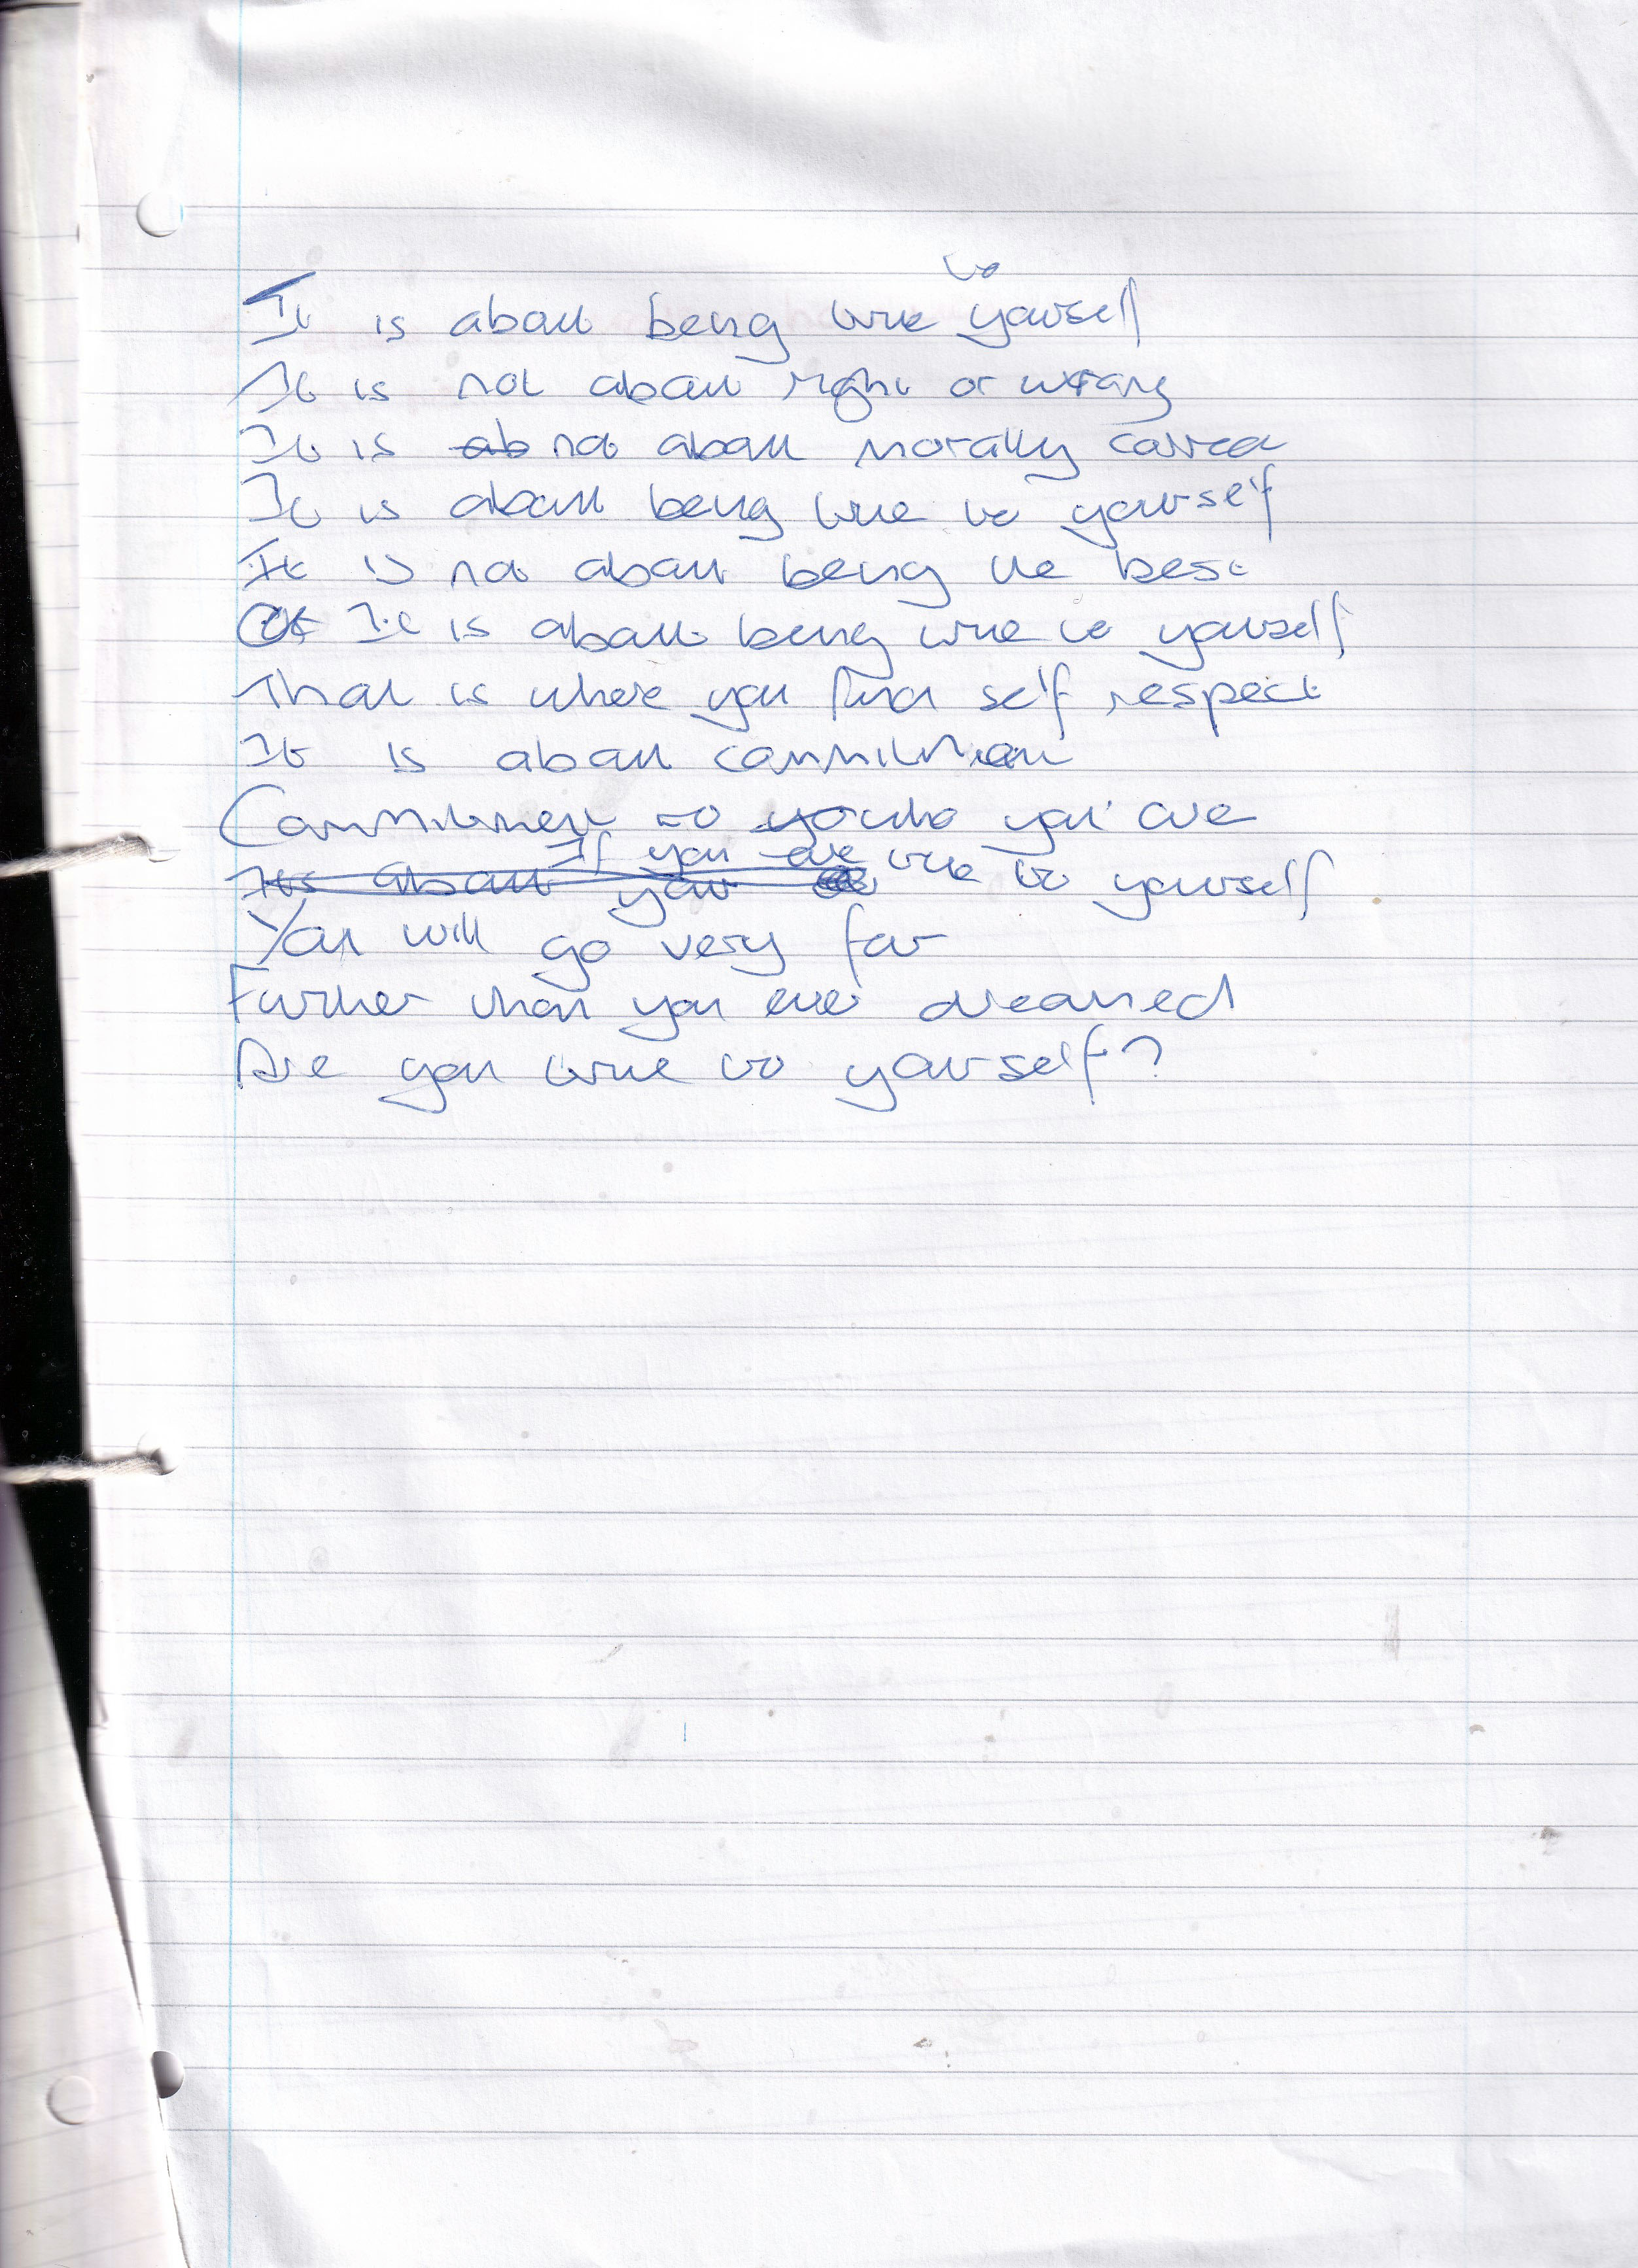 It is about being true to yourself
It is not about right or wrong
It is ab not about morally correct
It is about being true to yourself
It is not about being the best
It is about being true to yourself
That is where you find self respect
It is about commitment
Commitment to who you are
Its about your
If you are true to yourself
You will go very far
Further than you ever dreamed
Are you true to yourself?